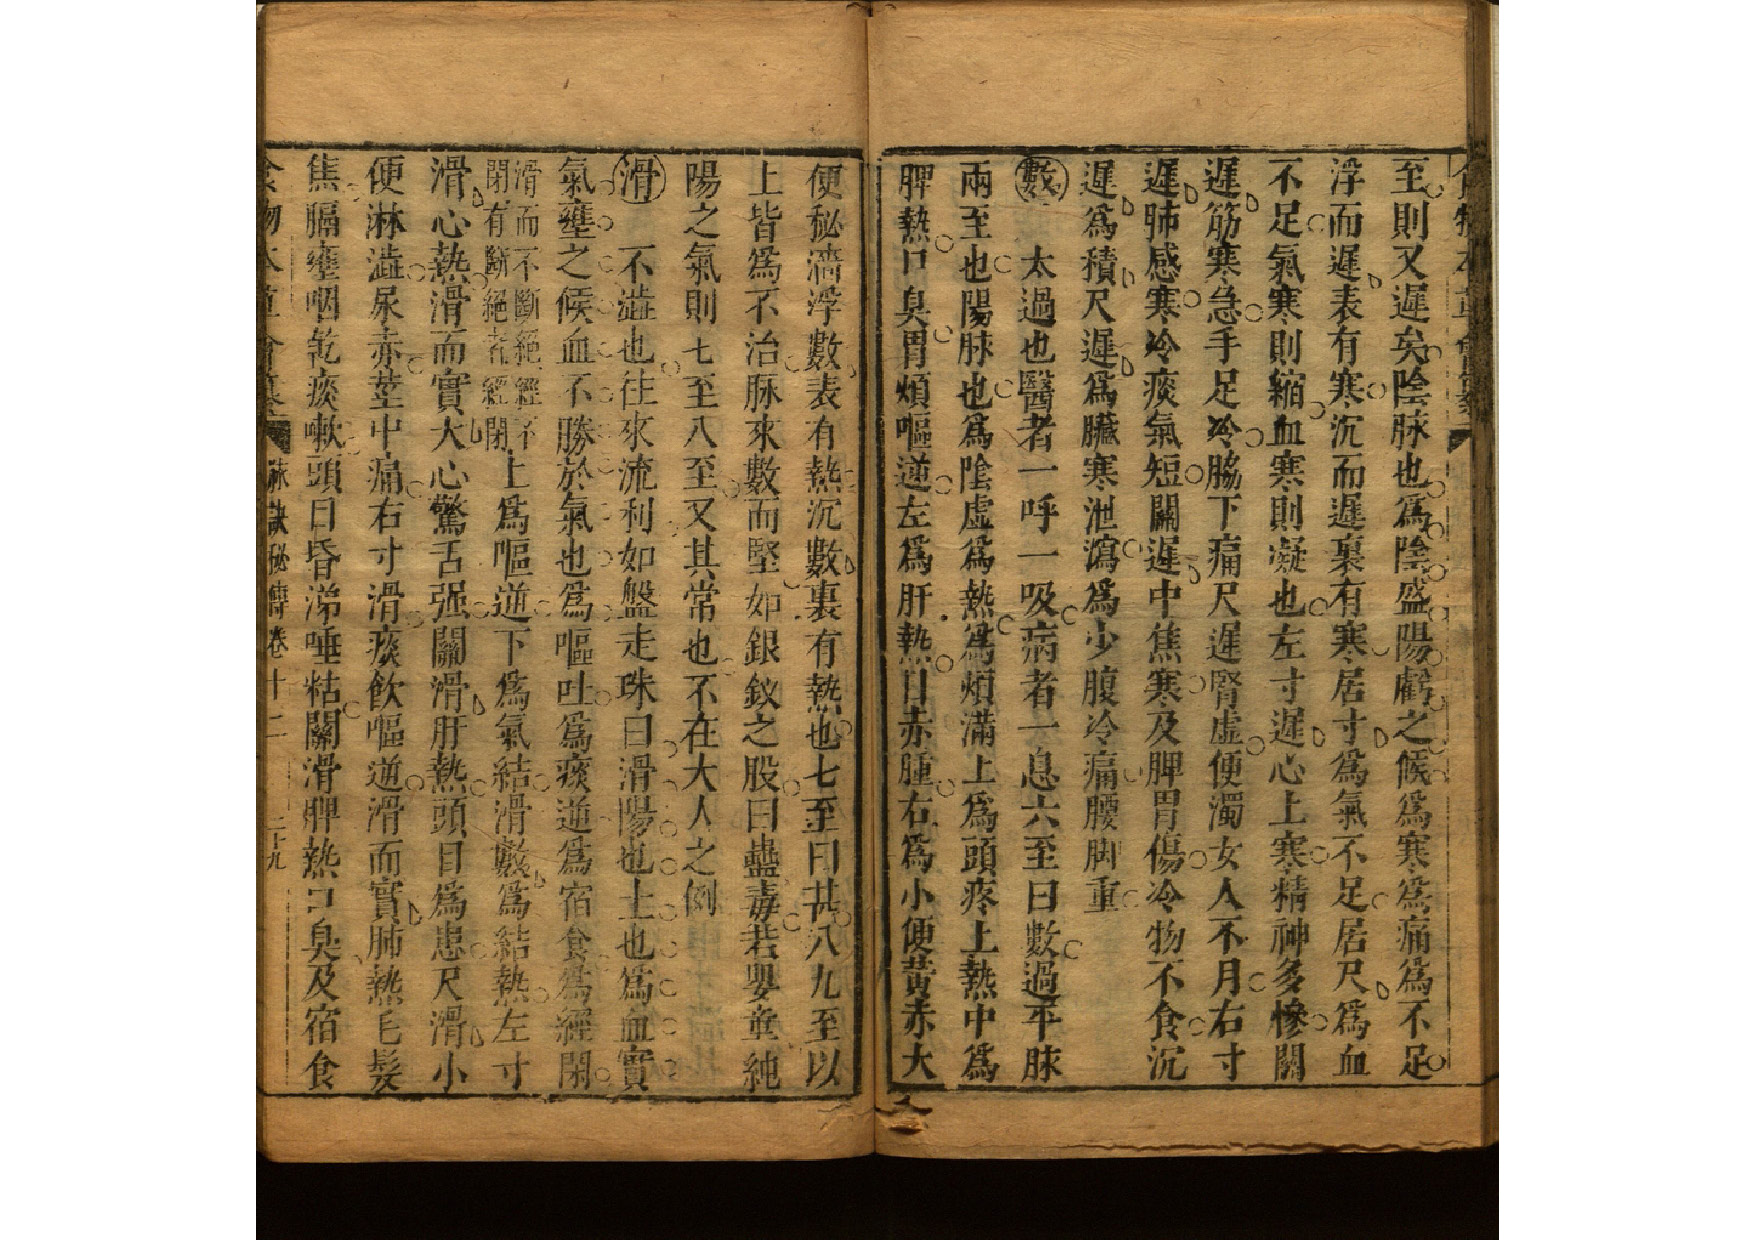 至則又遲矣陰脉也爲陰盛陽虧之候爲寒爲痛爲不足
浮而遲表有寒沉而遲裏有寒居寸爲氣不足居尺爲血
不足氣寒則縮血寒則凝也左寸遲心上寒精神多慘關
遲筋寒急手足冷脇下痛尺遲腎虛便濁女人不月右寸
遲肺感寒冷痰氣短關遲中焦寒及脾胃傷冷物不食沉
遲爲積尺遲爲臟寒泄瀉爲少腹冷痛腰脚重
數 太過也醫者一呼一吸病者一息六至曰數過平脉
兩至也陽脉也爲陰虛爲熱爲煩滿上爲頭疼上熱中爲
脾熱口臭胃煩嘔逆左爲肝熱目赤腫右爲小便黃赤大
便秘濇浮數表有熱沉數裏有熱也七至曰甚八九至以
上皆爲不治脉來數而堅如銀釵之股曰蠱毒若嬰童純
陽之氣則七至八至又其常也不在大人之例
滑 不澁也往來流利如盤走珠曰滑陽也土也爲血實
氣壅之候血不勝於氣也爲嘔吐爲痰逆爲宿食爲經閉
滑而不斷絕經不
閉有斷絕者經閉
上爲嘔逆下爲氣結滑數爲結熱左寸
滑心熱滑而實大心驚舌强關滑肝熱頭目爲患尺滑小
便淋澁尿赤莖中痛右寸滑痰飲嘔逆滑而實肺熱毛髮
焦膈壅咽乾痰嗽頭目昏涕唾粘關滑脾熱口臭及宿食
食物本草會纂
脉訣秘傳卷十二
二十九